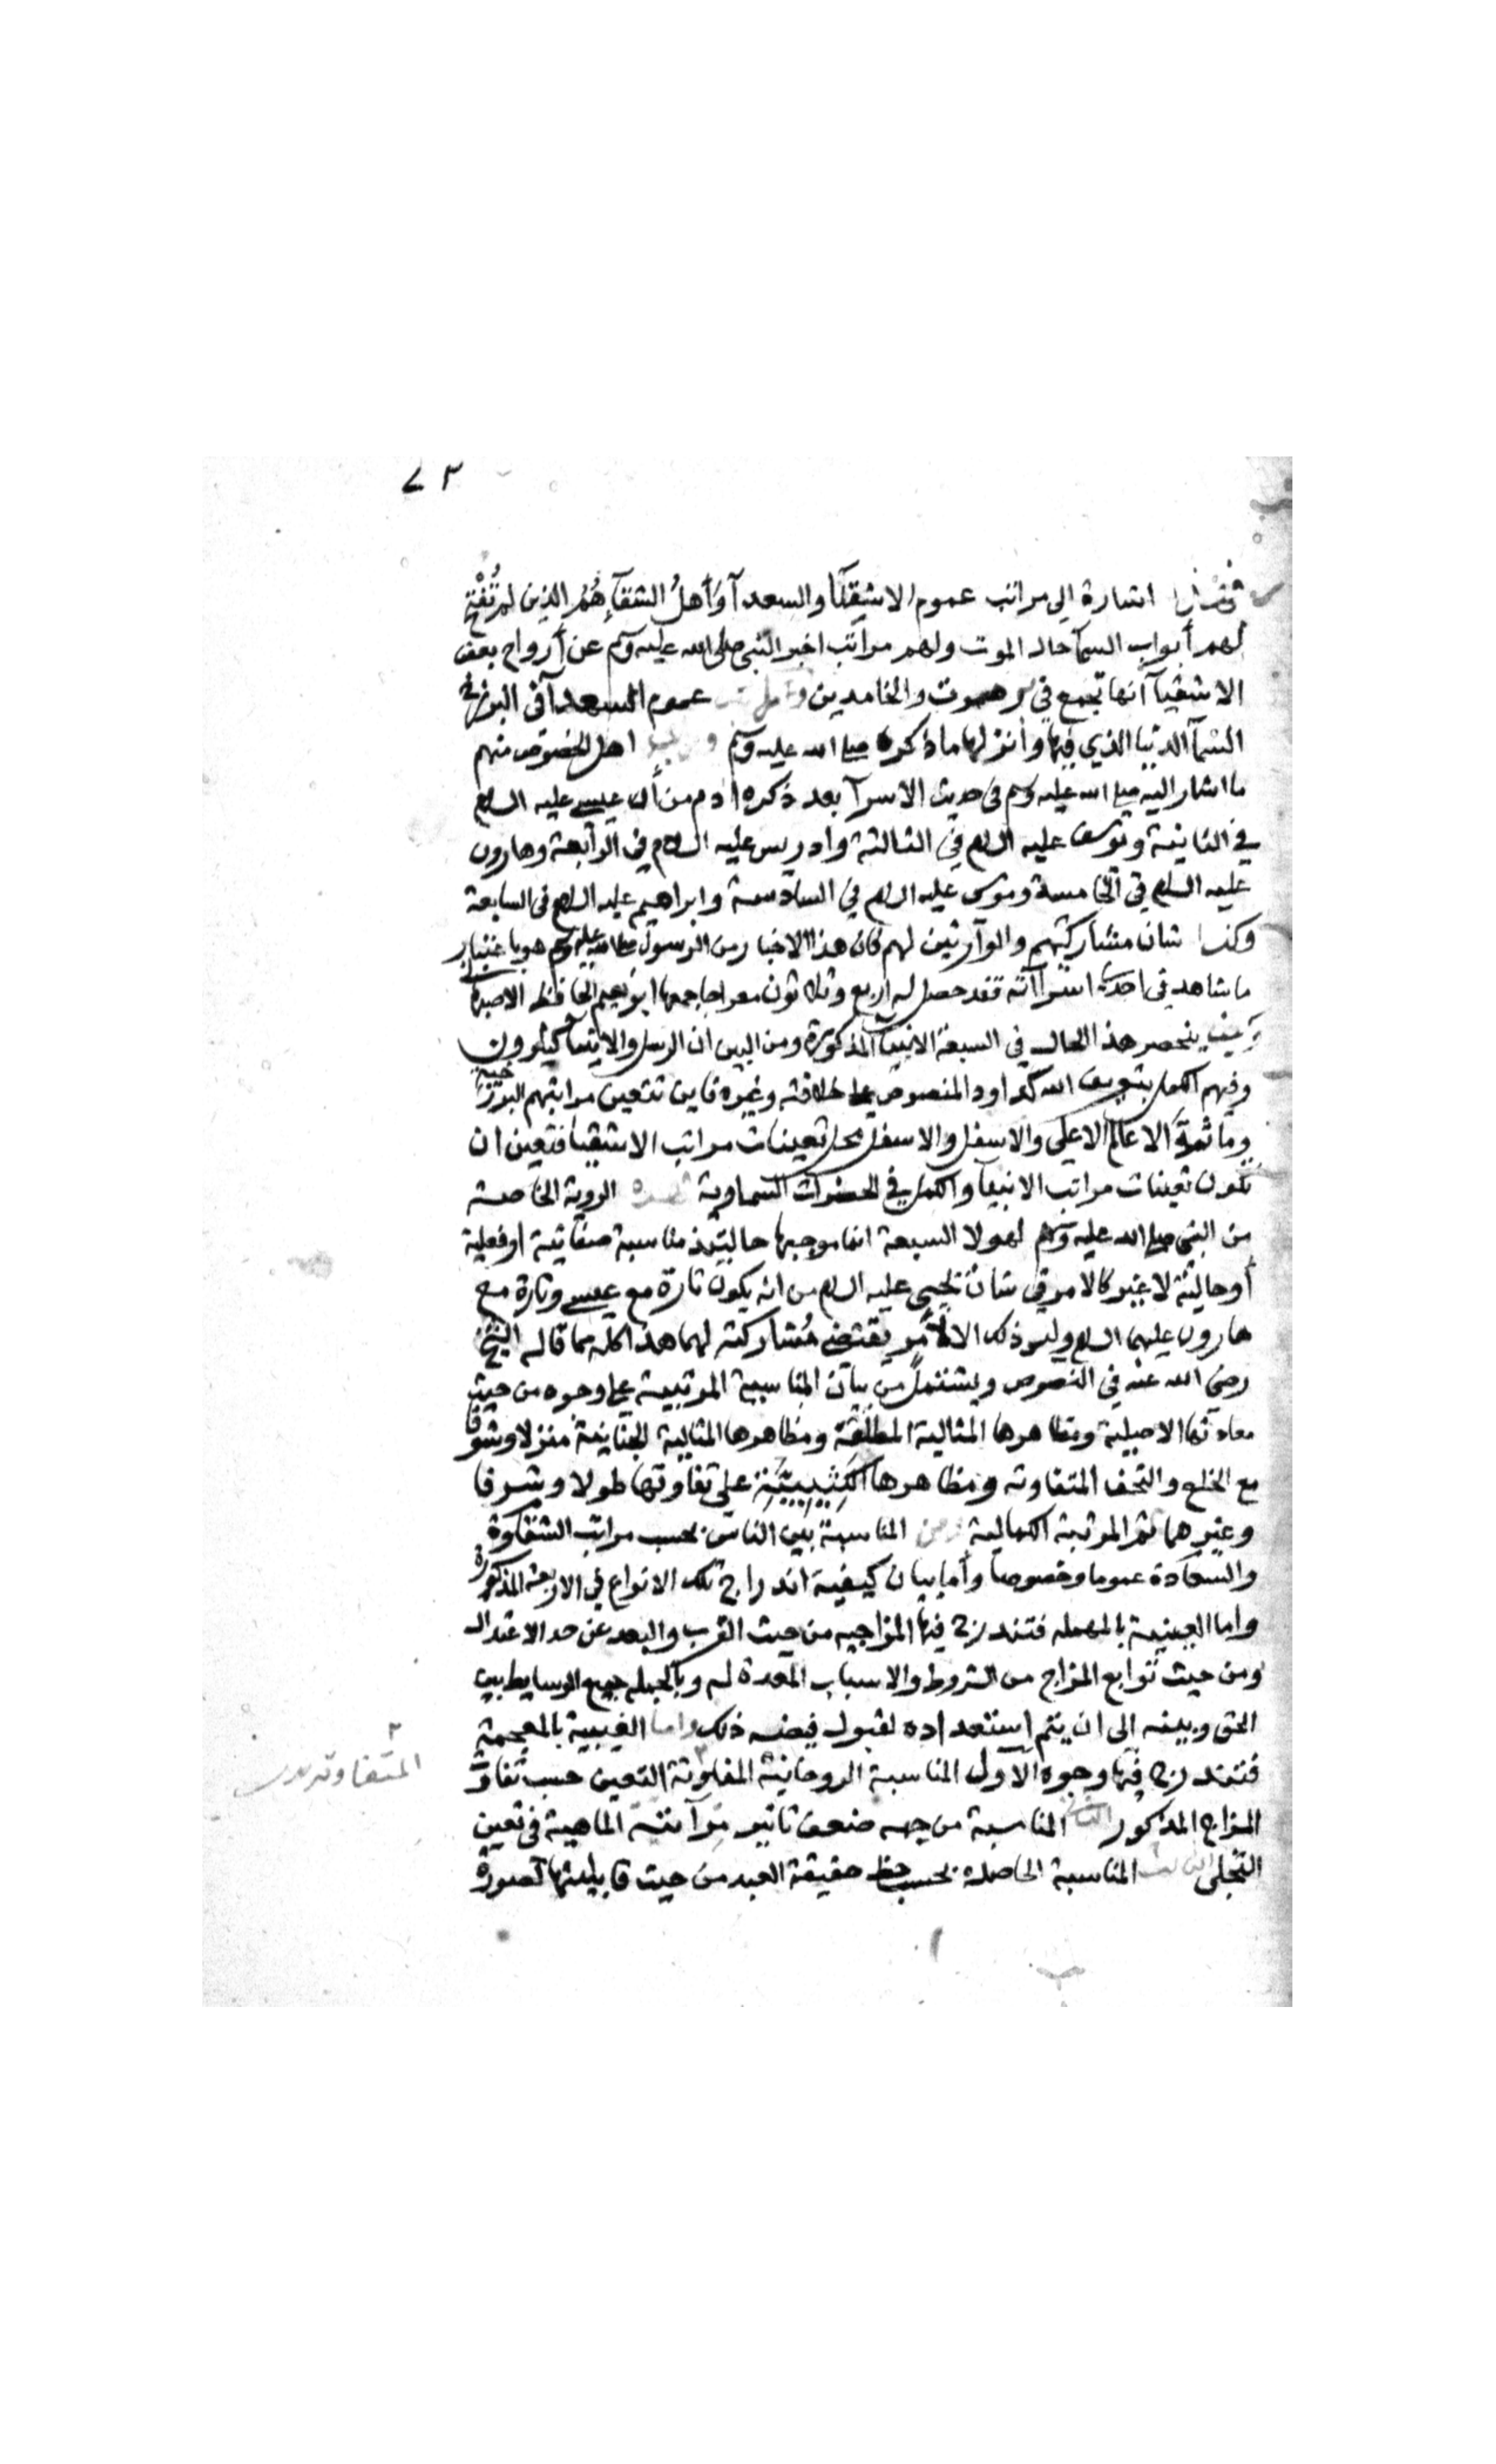 ٧٣
اشارة الى مراتب عموم الاشقيآ والسعدآ وأهلُ الشقآءِ هُمُ الذين لم تُفْتَح
لهم أبواب السمآ حال الموت ولهم مراتب اخبر النبي صلى الله عليه وسلم عن أرواح بعض
الاشقيآ أنها تجمع في برهوت والخامدين عموم السعدآ في البرزخ
السمآ الدنيا الذي فيها وأنزلها ما ذكره صلى الله عليه وسلم اهل الخصوص منهم
ما اشار اليه صلى الله عليه وسلم في حديث الاسرآ بعد ذكره ادم من أن عيسى عليه السلام
في الثانية ويوسف عليه السلام في الثالثة وادريس عليه السلام في الرابعة وهارون
عليه السلام في الخامسة وموسى عليه السلام في السادسة وابراهيم عليه السلام في السابعة
وكذا شان مشاركتهم والوارثين لهم فان هذا الاخبار من الرسول صلى الله عليه وسلم هو باعتبار
ما شاهد في احدى اسرآآته فقد حصل له اربع وثلاثون معراجا جمعها ابو نعيم الحافظ الاصبهاني
ينحصر هذ الحال في السبعة الانبيآ المذكورة ومن البين ان الرسل والانبيآ كثيرون
وفيهم الكمل بتعريف الله كداود المنصوص على خلافته وغيره فاين تتعين مراتبهم البرزخية
وما ثمة الا عالم الاعلى والاسفل والاسفل محل تعينات مراتب الاشقيا فتعين ان
تكون تعينات مراتب الانبيآ والكمل في الحضرات السماوية الروية الخاصة
من النبي صلى الله عليه وسلم لهولا السبعة انما موجبها حالتيذ مناسبة صفاتية او فعلية
أو حالية لا غير كالامر في شان يحيى عليه السلام من انه يكون تارة مع عيسى وتارة مع
هارون عليهما السلام وليس ذلك الا لأمر يقتضى مُشاركته لهما هذا كله مما قاله الشيخ
رضي الله عنه في النصوص ويشتمل من بيان المناسبة المرتبية على وجوه من حيث
معادنها الاصيلية ومظاهرها المثالية المطلقة ومظاهرها المثالية الجنانية منزلا وشرفا
مع الخلع والتحف المتفاوته ومظاهرها الكَثِيبِيَّةِ على تفاوتها طولا وشرفا
وغيرهما ثم المرتبة الكمالية المناسبة بين الناس بحسب مراتب الشقاوة
والسعادة عموما وخصوصا وأما بيان كيفية اندراج تلك الانواع في الاربعة المذكورة
واما العينية بالمهمله فتندرج فيها المزاجيه من حيث القرب والبعد عن حد الاعتدال
ومن حيث توابع المزاج من الشروط والاسباب المعدة له وبالجملة جميع الوسايط بين
الحق وبينه الى ان يتم استعداده لقبول فيضه ذلك واما الغيبية بالمعجمة
فتندرج فيها وجوه الأول المناسبة الروحانية المتفاوتة التعين حسب تفاوت
المزاج المذكور الثاني المناسبة من جهه ضعف تاثير مرآتية الماهية في تعين
التجلي الثالث المناسبة الحاصلة بحسب حظ حقيقة العبد من حيث قابليتها لصورة